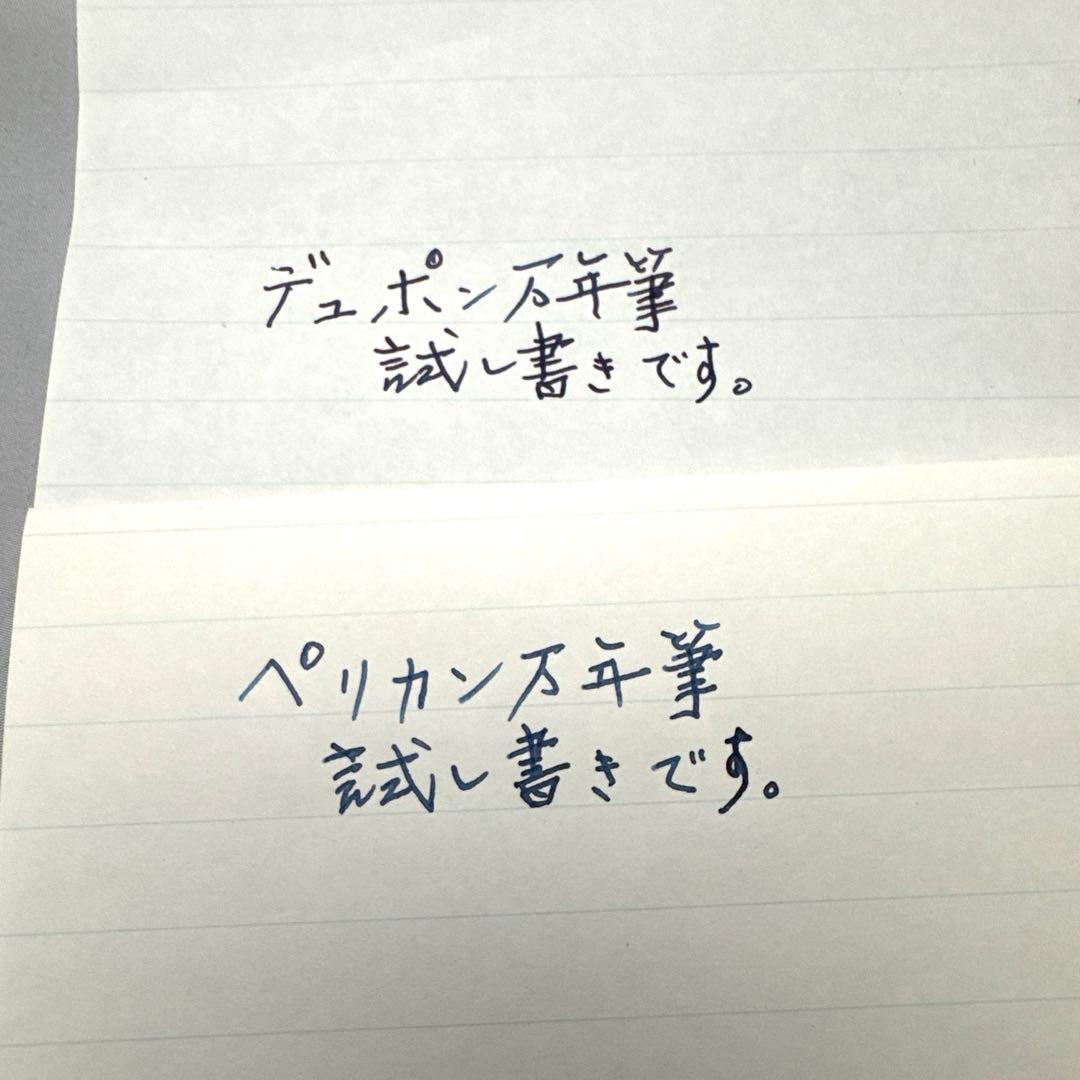 デュポン万年筆
試し書きです。
ペリカン万年筆
試し書きです。